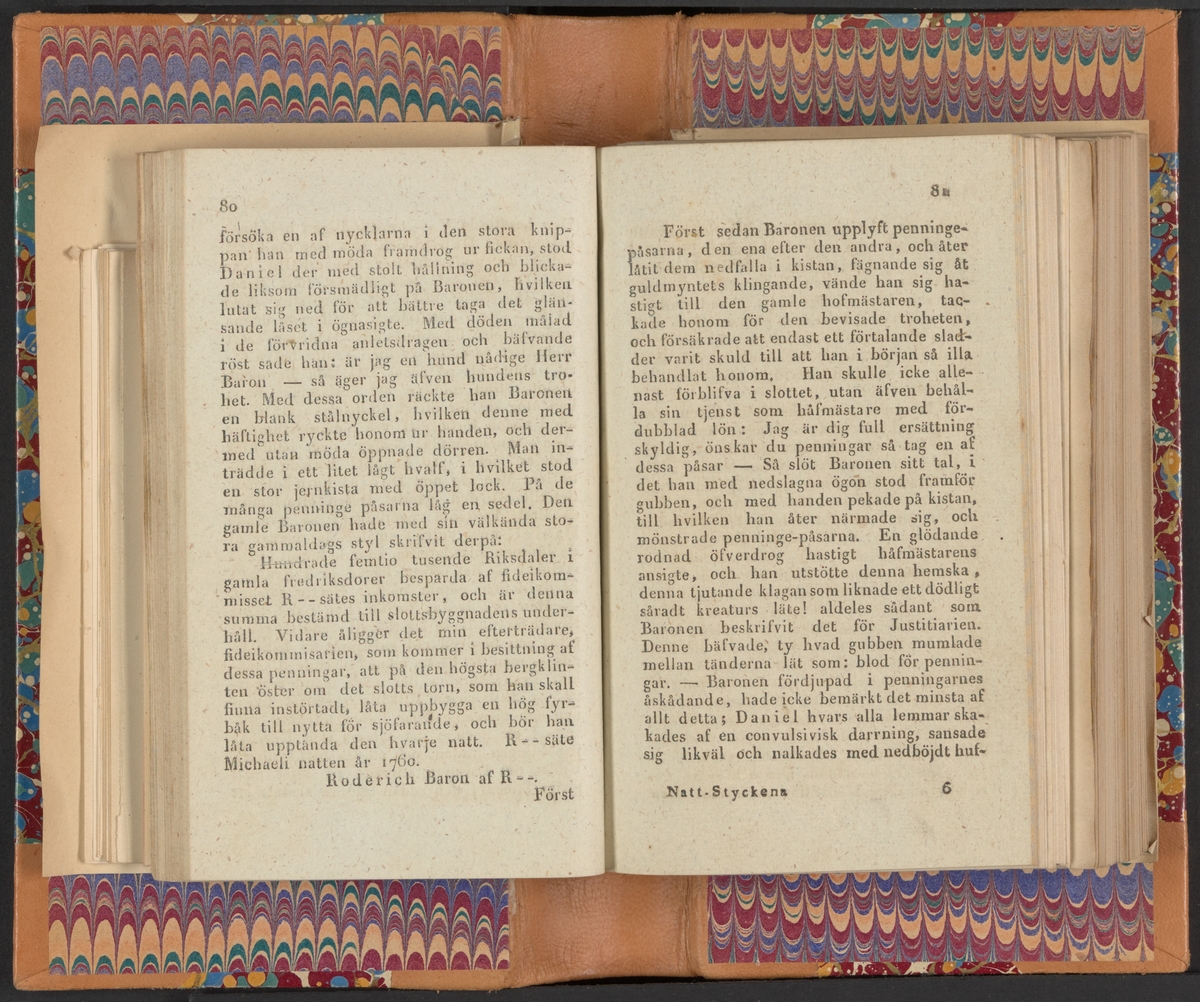 80
försöka en af nycklarna i den stora knip-
pan han med möda framdrog ur fickan, stod
Daniel der med stolt hållning och blicka-
de liksom försmädligt på Baronen, hvilken
lutat sig ned för att bättre taga det glän-
sande låset i ögnasigte. Med döden målad
i de förvridna anletsdragen och bäfvande
röst sade han: är jag en hund nådige Herr
Baron — så äger jag äfven hundens tro-
het. Med dessa orden räckte han Baronen
en blank stålnyckel, hvilken denne med
häftighet ryckte honom ur handen, och der-
med utan möda öppnade dörren. Man in-
trädde i ett litet lågt hvalf, i hvilket stod
en stor jernkista med öppet lock. På de
många penninge påsarna låg en sedel. Den
gamle Baronen hade med sin välkända sto-
ra gammaldags styl skrifvit derpå:
Hundrade femtio tusende Riksdaler i
gamla fredriksdorer besparda af fideikom-
misset R -- sätes inkomster, och är denna
summa bestämd till slottsbyggnadens under-
håll. Vidare åligger det min efterträdare,
fideikommisarien, som kommer i besittning af
dessa penningar, att på den högsta bergklin-
ten öster om det slotts torn, som han skall
finna instörtadt, låta uppbygga en hög fyr-
båk till nytta för sjöfarande, och bör han
låta upptända den hvarje natt. R -- säte
Michaeli natten år 1760.
Roderich Baron af R --.
Först
81
Först sedan Baronen upplyft penninge-
påsarna, den ena efter den andra, och åter
låtit dem nedfalla i kistan, fägnande sig åt
guldmyntets klingande, vände han sig ha-
stigt till den gamle hofmästaren, tac-
kade honom för den bevisade troheten,
och försäkrade att endast ett förtalande slad-
der varit skuld till att han i början så illa
behandlat honom. Han skulle icke alle-
nast förblifva i slottet, utan äfven behål-
la sin tjenst som håfmästare med för-
dubblad lön: Jag är dig full ersättning
skyldig, önskar du penningar så tag en af
dessa påsar — Så slöt Baronen sitt tal, i
det han med nedslagna ögon stod framför
gubben, och med handen pekade på kistan,
till hvilken han åter närmade sig, och
mönstrade penninge-påsarna. En glödande
rodnad öfverdrog hastigt håfmästarens
ansigte, och han utstötte denna hemska,
denna tjutande klagan som liknade ett dödligt
såradt kreaturs läte! aldeles sådant som
Baronen beskrifvit det för Justitiarien.
Denne bäfvade, ty hvad gubben mumlade
mellan tänderna lät som: blod för pennin-
gar. — Baronen fördjupad i penningarnes
åskådande, hade icke bemärkt det minsta af
allt detta; Daniel hvars alla lemmar ska-
kades af en convulsivisk darrning, sansade
sig likväl och nalkades med nedböjdt huf-
Natt-Styckena 6